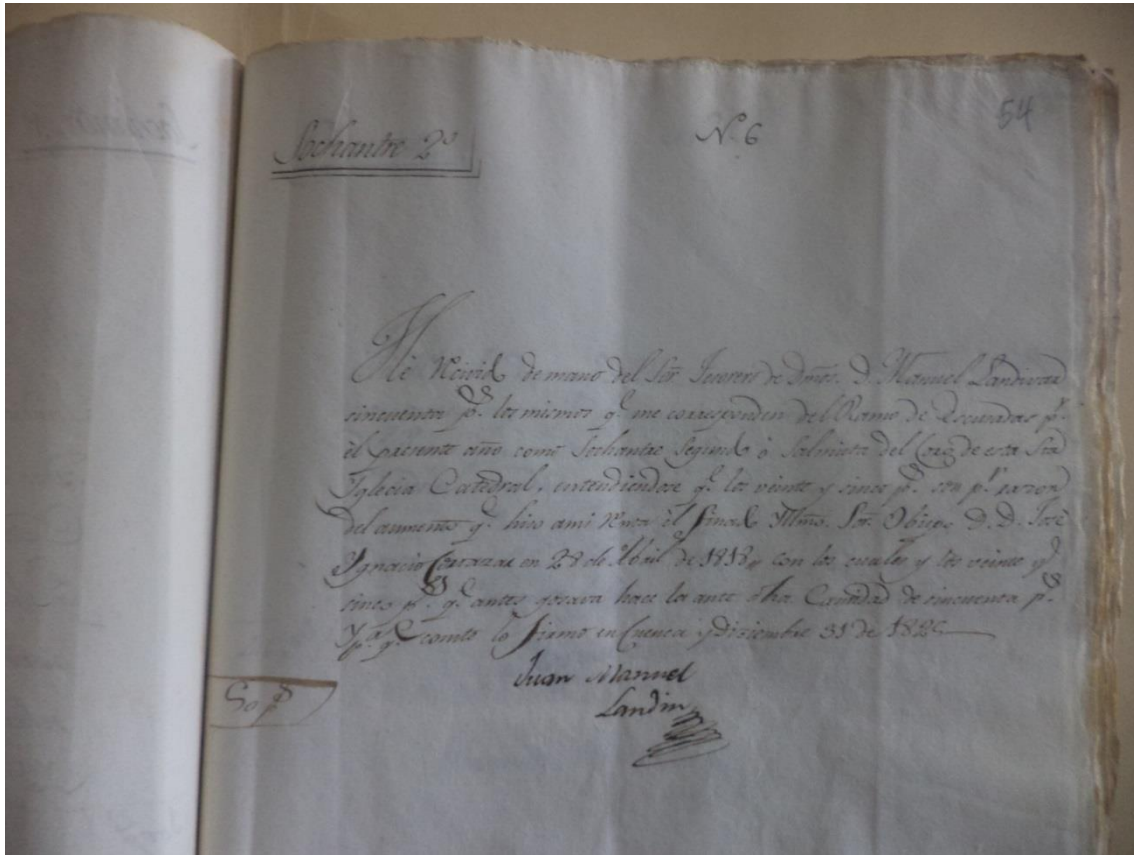 54
Sochantre 2º
N. 6
Hé Recivido de mano del Sor. Tesorero de Dmos. D. Manuel Landivar
cincuenta ps. los mismos qe. me corresponden del Ramo de Escusadas pr.
el presente año como Sochantre Segundo ò Salmista del Coro de esta Sta.
Yglecia Catedral, entendiendose qe. los veinte y sinco ps. son pr. razon
del aumento qe. hiso ami Renta el finado Yllmo. Sor. Obispo D. D. José
Ygnacio Cortazar en 28 de Abril de 1818,, con los cuales y los veinte y
sinco ps. qe. antes gosava hace la ante dha. Cantidad de sincuenta ps.
Y pa. qe. conste lo firmo en Cuenca y Diziembre 31 de
Juan Manuel
Landin
50 ps